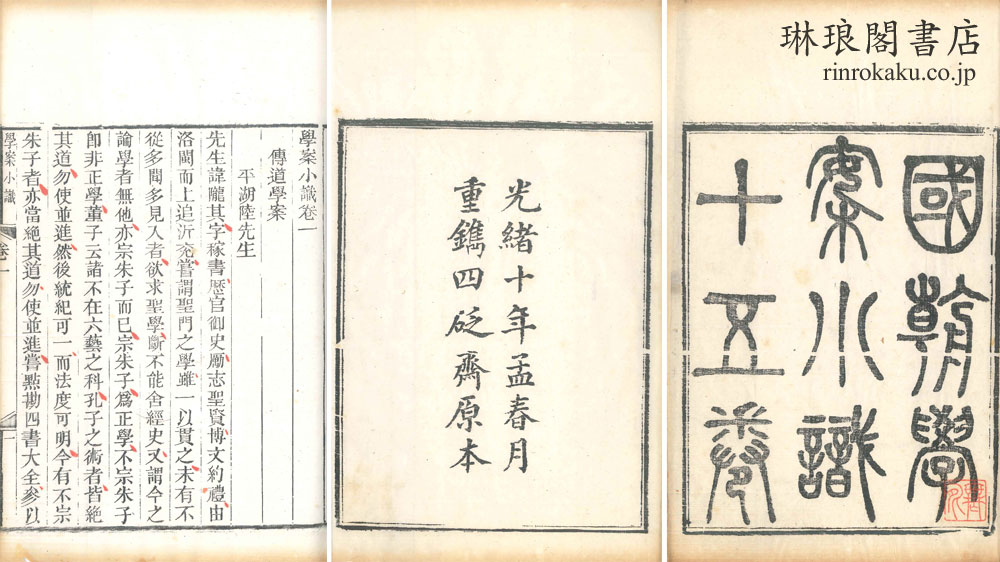 琳琅閣書店
rinrokaku.co.jp
國朝學
案小識
十五卷
光緒十年孟春月
重鐫四砭齋原本
學案小識卷一
傳道學案
平湖陸先生
先生諱隴其字稼書歷官御史勵志聖賢博文約禮由
洛閩而上追沂兗嘗謂聖門之學雖一以貫之未有不
從多聞多見入者欲求聖學斷不能舍經史又謂今之
論學者無他亦宗朱子而已宗朱子爲正學不宗朱子
卽非正學董子云諸不在六藝之科孔子之術者皆絕
其道勿使並進然後統紀可一而法度可明今有不宗
朱子者亦當絕其道勿使並進嘗點勘四書大全參以
學案小識 卷一 一